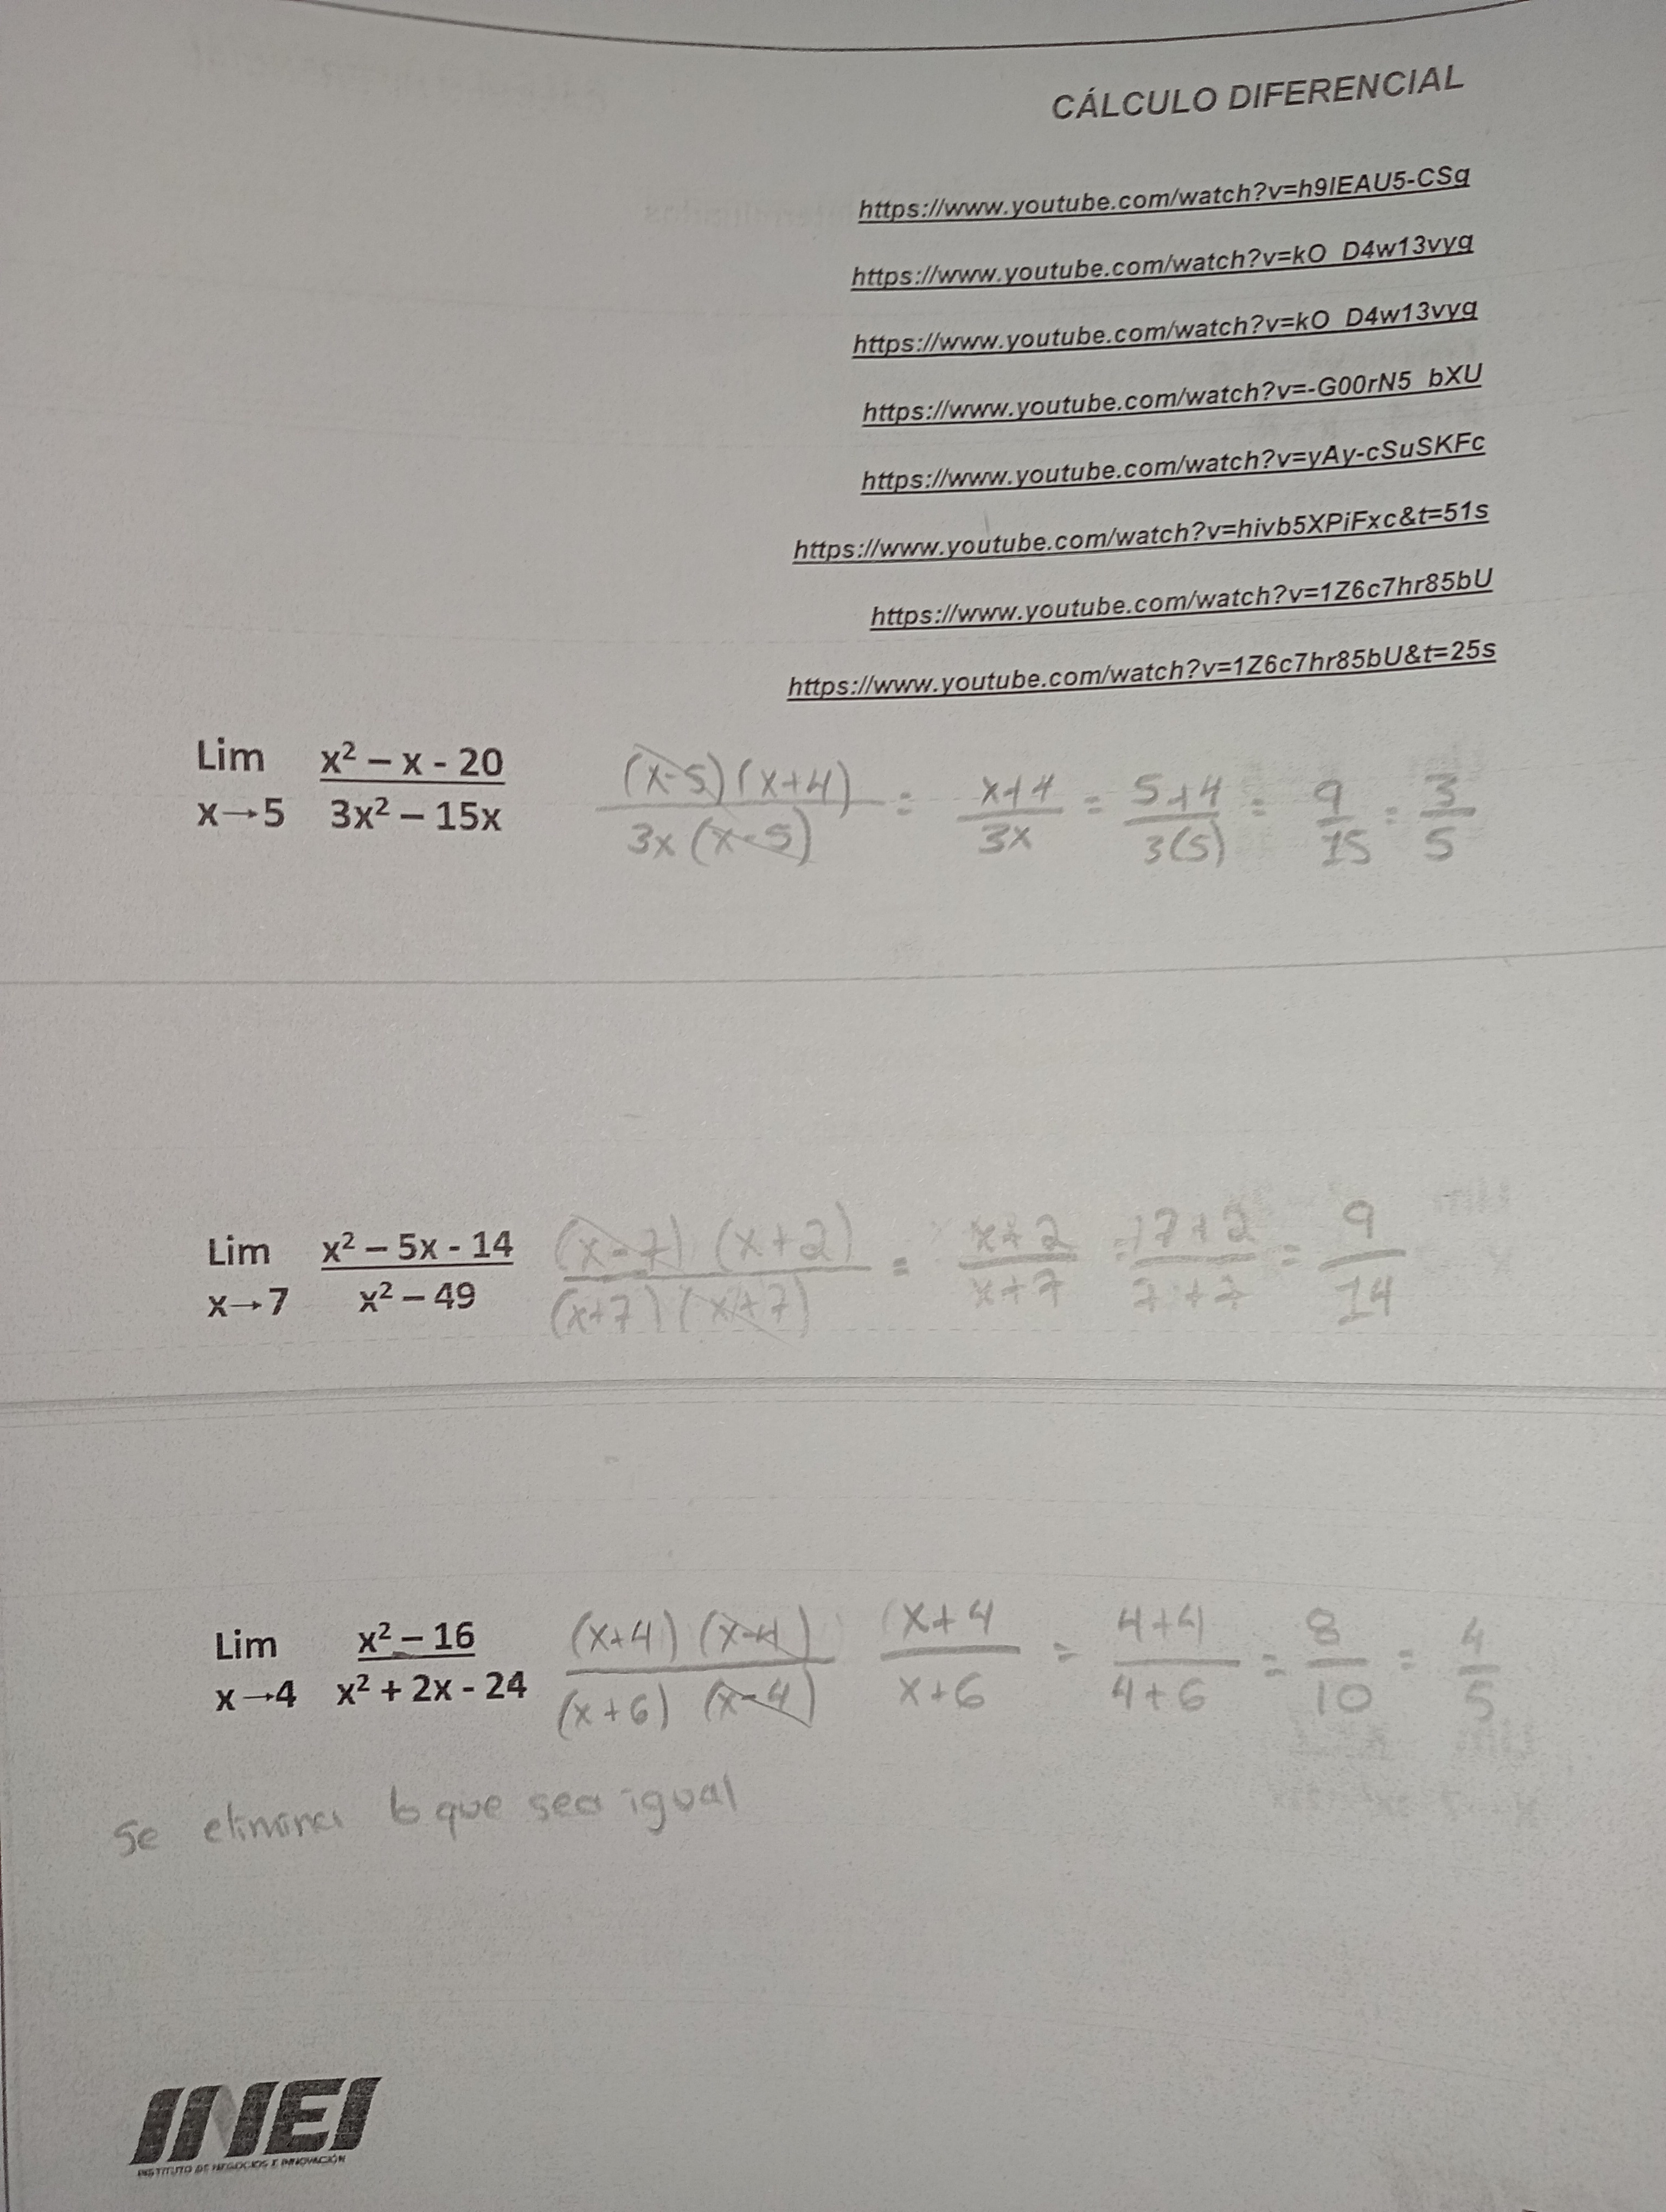 CÁLCULO DIFERENCIAL
https://www.youtube.com/watch?v=h9IEAU5-CSg
https://www.youtube.com/watch?v=kO_D4w13vyg
https://www.youtube.com/watch?v=kO_D4w13vyg
https://www.youtube.com/watch?v=-G00rN5_bXU
https://www.youtube.com/watch?v=yAy-cSuSKFc
https://www.youtube.com/watch?v=hivb5XPiFxc&t=51s
https://www.youtube.com/watch?v=1Z6c7hr85bU
https://www.youtube.com/watch?v=1Z6c7hr85bU&t=25s
Lim x² – x - 20 (x-5)(x+4) = x+4 = 5+4 = 9 = 3
x→5 3x² – 15x 3x(x-5) 3x 3(5) 15 5
Lim x² – 5x - 14 (x-7) (x+2) = x+2 = 7+2 = 9
x→7 x² – 49 (x+7)(x+7) x+7 7+7 14
Lim x² – 16 (x+4) (x-4) x+4 = 4+4 = 8 = 4
x→4 x² + 2x - 24 (x+6) (x-4) x+6 4+6 10 5
Se elimina lo que sea igual
INEI
INSTITUTO DE NEGOCIOS E INNOVACIÓN